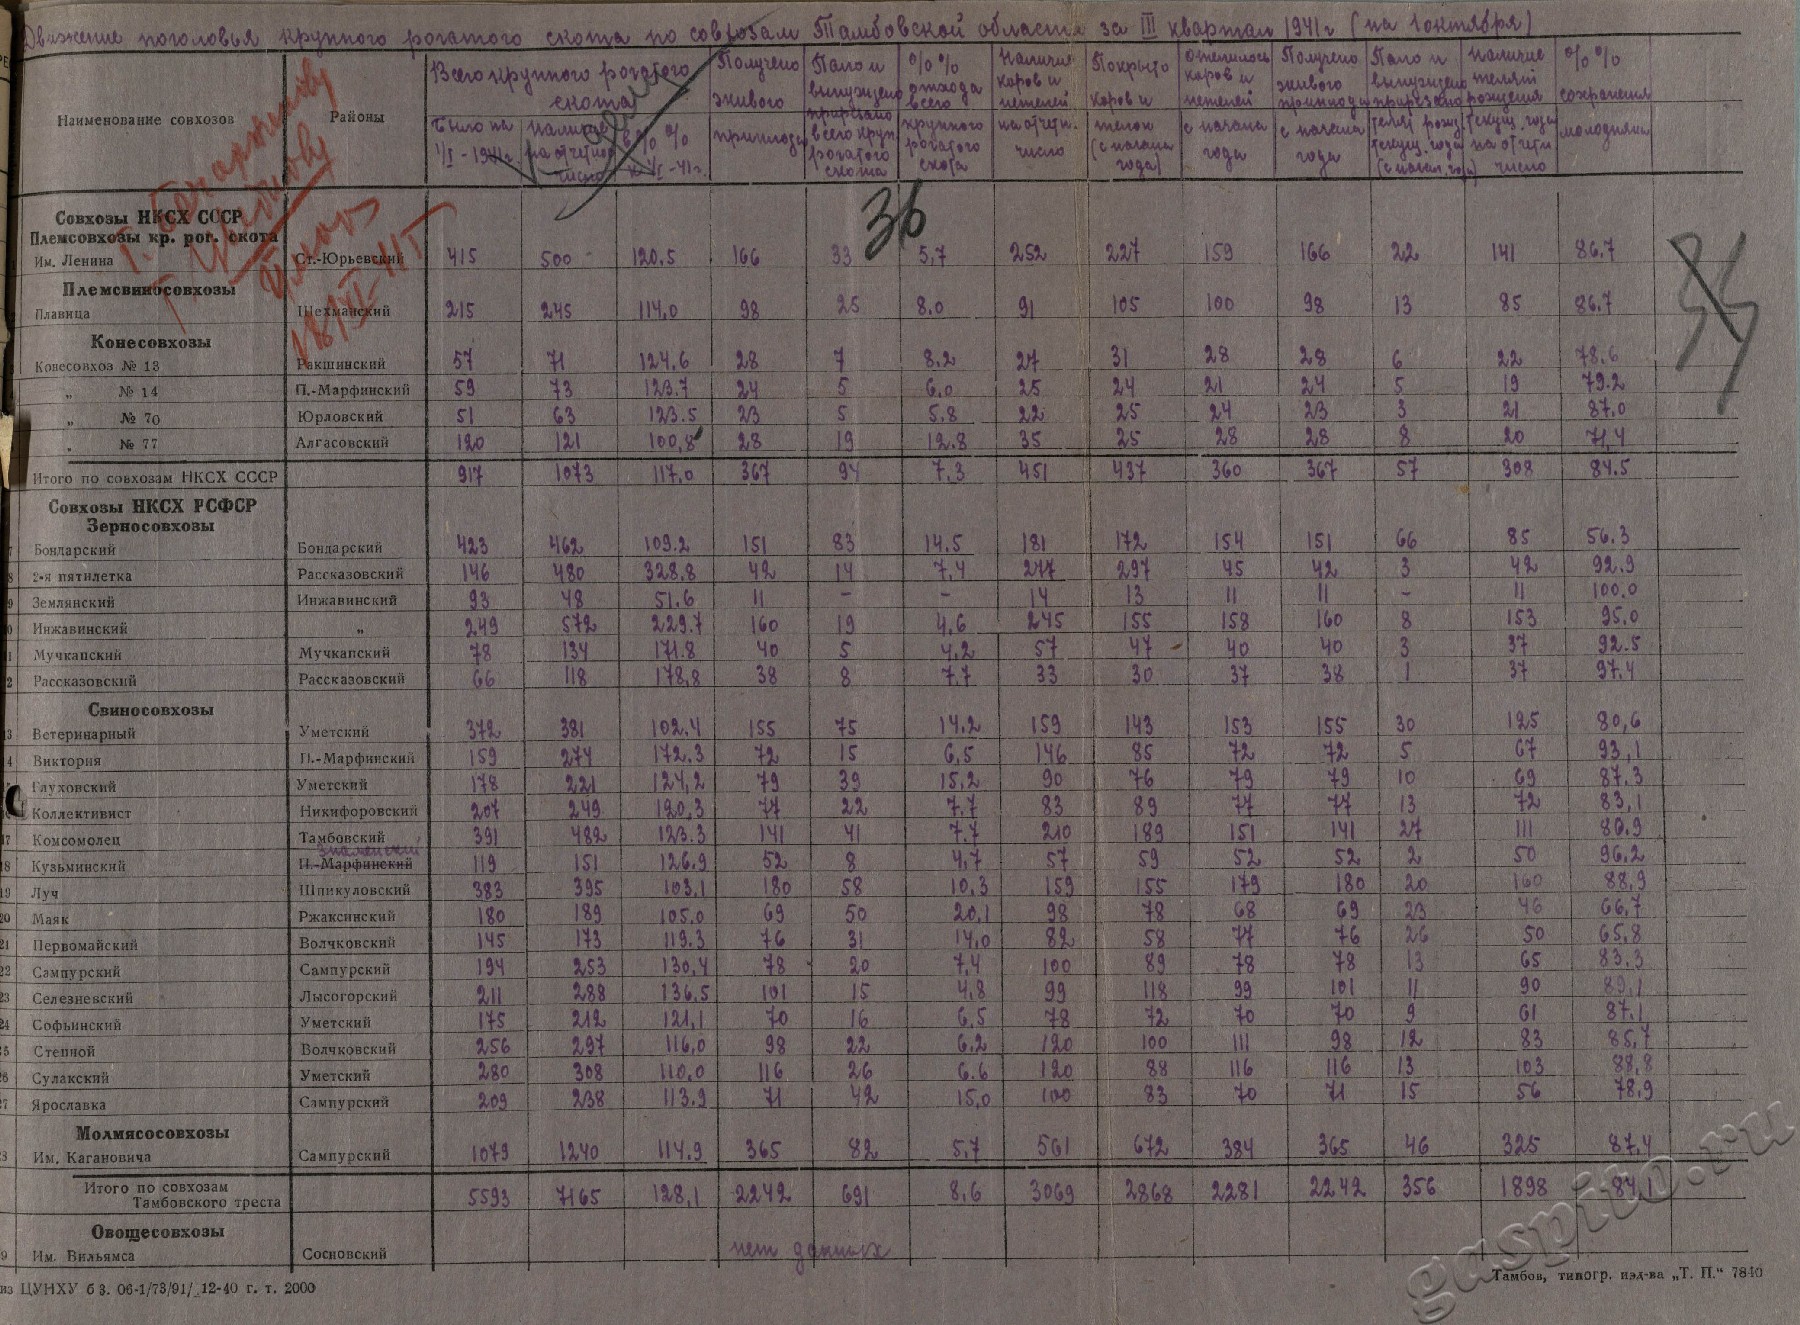 Движение поголовья крупного рогатого скота по совхозам Тамбовской области за III квартал 1941 г (на 1 октября)
Наименование совхозов | Районы | Всего крупного рогатого скота | Было на 1/I-1941 г. | Наличие на отчетное число | в % % к 1/I-41 г. | Получено живого приплода | Пало и вынуждено прирезано всего круп. рогатого скота | % % отхода всего крупного рогатого скота | Наличие коров и нетелей на отчетн. число | Покрыто коров и телок (с начала года) | Отелилось коров и нетелей с начала года | Получено живого приплода с начала года | Пало и вынуждено прирезано телят рожд. текущ. года (с начал. года) | Наличие телят рождения текущ. года на отчетн. число | % % сохранения молодняка
36
Совхозы НКСХ СССР
Племсовхозы кр. рог. скота
Им. Ленина Ст.-Юрьевский 415 500 120.5 166 33 5,7 252 227 159 166 22 141 86.7
Племсвиносовхозы
Плавица Шехманский 215 245 114,0 98 25 8.0 91 105 100 98 13 85 86.7
18/XI-41 г
Конесовхозы
Конесовхоз № 13 Ракшинский 57 71 124.6 28 7 8.2 27 31 28 28 6 22 78.6
„ № 14 П.-Марфинский 59 73 123.7 24 5 6,0 25 24 21 24 5 19 79.2
„ № 70 Юрловский 51 63 123.5 23 5 5.8 22 25 24 23 3 21 87.0
„ № 77 Алгасовский 120 121 100,8 28 19 12.8 35 25 28 28 8 20 71,4
Итого по совхозам НКСХ СССР 917 1073 117,0 367 94 7,3 451 437 360 367 57 308 84.5
Совхозы НКСХ РСФСР
Зерносовхозы
7 Бондарский Бондарский 423 462 109.2 151 83 14.5 181 172 154 151 66 85 56.3
8 2-я пятилетка Рассказовский 146 480 328.8 42 14 7,4 277 297 45 42 3 42 92.9
9 Землянский Инжавинский 93 48 51.6 11 - - 14 13 11 11 - 11 100.0
0 Инжавинский „ 249 572 229.7 160 19 4,6 245 155 158 160 8 153 95,0
1 Мучкапский Мучкапский 78 134 171.8 40 5 4,2 57 47 40 40 3 37 92.5
2 Рассказовский Рассказовский 66 118 178,8 38 8 7.7 33 30 37 38 1 37 97.4
Свиносовхозы
13 Ветеринарный Уметский 372 381 102.4 155 75 14,2 159 143 153 155 30 125 80,6
4 Виктория П.-Марфинский 159 274 172.3 72 15 6,5 146 85 72 72 5 67 93,1
Глуховский Уметский 178 221 124,2 79 39 15,2 90 76 79 79 10 69 87.3
Коллективист Никифоровский 207 249 120,3 77 22 7.7 83 89 77 77 13 72 83,1
17 Комсомолец Тамбовский 391 482 123.3 141 41 7.7 210 189 151 141 27 111 80.9
18 Кузьминский П.-Марфинский 119 151 126.9 52 8 4,7 57 59 52 52 2 50 96.2
19 Луч Шпикуловский 383 395 103,1 180 58 10,3 159 155 179 180 20 160 88,9
20 Маяк Ржаксинский 180 189 105.0 69 50 20,1 98 78 68 69 23 46 66,7
21 Первомайский Волчковский 145 173 119.3 76 31 14,0 82 58 77 76 26 50 65,8
22 Сампурский Сампурский 194 253 130,4 78 20 7,4 100 89 78 78 13 65 83.3
23 Селезневский Лысогорский 211 288 136.5 101 15 4,8 99 118 99 101 11 90 89,1
24 Софьинский Уметский 175 212 121,1 70 16 6,5 78 72 70 70 9 61 87.1
25 Степной Волчковский 256 297 116,0 98 22 6.2 120 100 111 98 12 83 85,7
26 Сулакский Уметский 280 308 110,0 116 26 6.6 120 88 116 116 13 103 88,8
27 Ярославка Сампурский 209 238 113.9 71 42 15,0 100 83 70 71 15 56 78,9
Молмясосовхозы
Им. Кагановича Сампурский 1079 1240 114.9 365 82 5,7 561 672 384 365 46 325 87.4
Итого по совхозам
Тамбовского треста 5593 7165 128,1 2242 691 8,6 3069 2868 2281 2242 356 1898 84,1
Овощесовхозы
9 Им. Вильямса Сосновский нет данных
из ЦУНХУ б З. 06-1/73/91/_12-40 г. т. 2000
Тамбов, типогр. изд-ва „Т. П.“ 7840
gaspito.ru